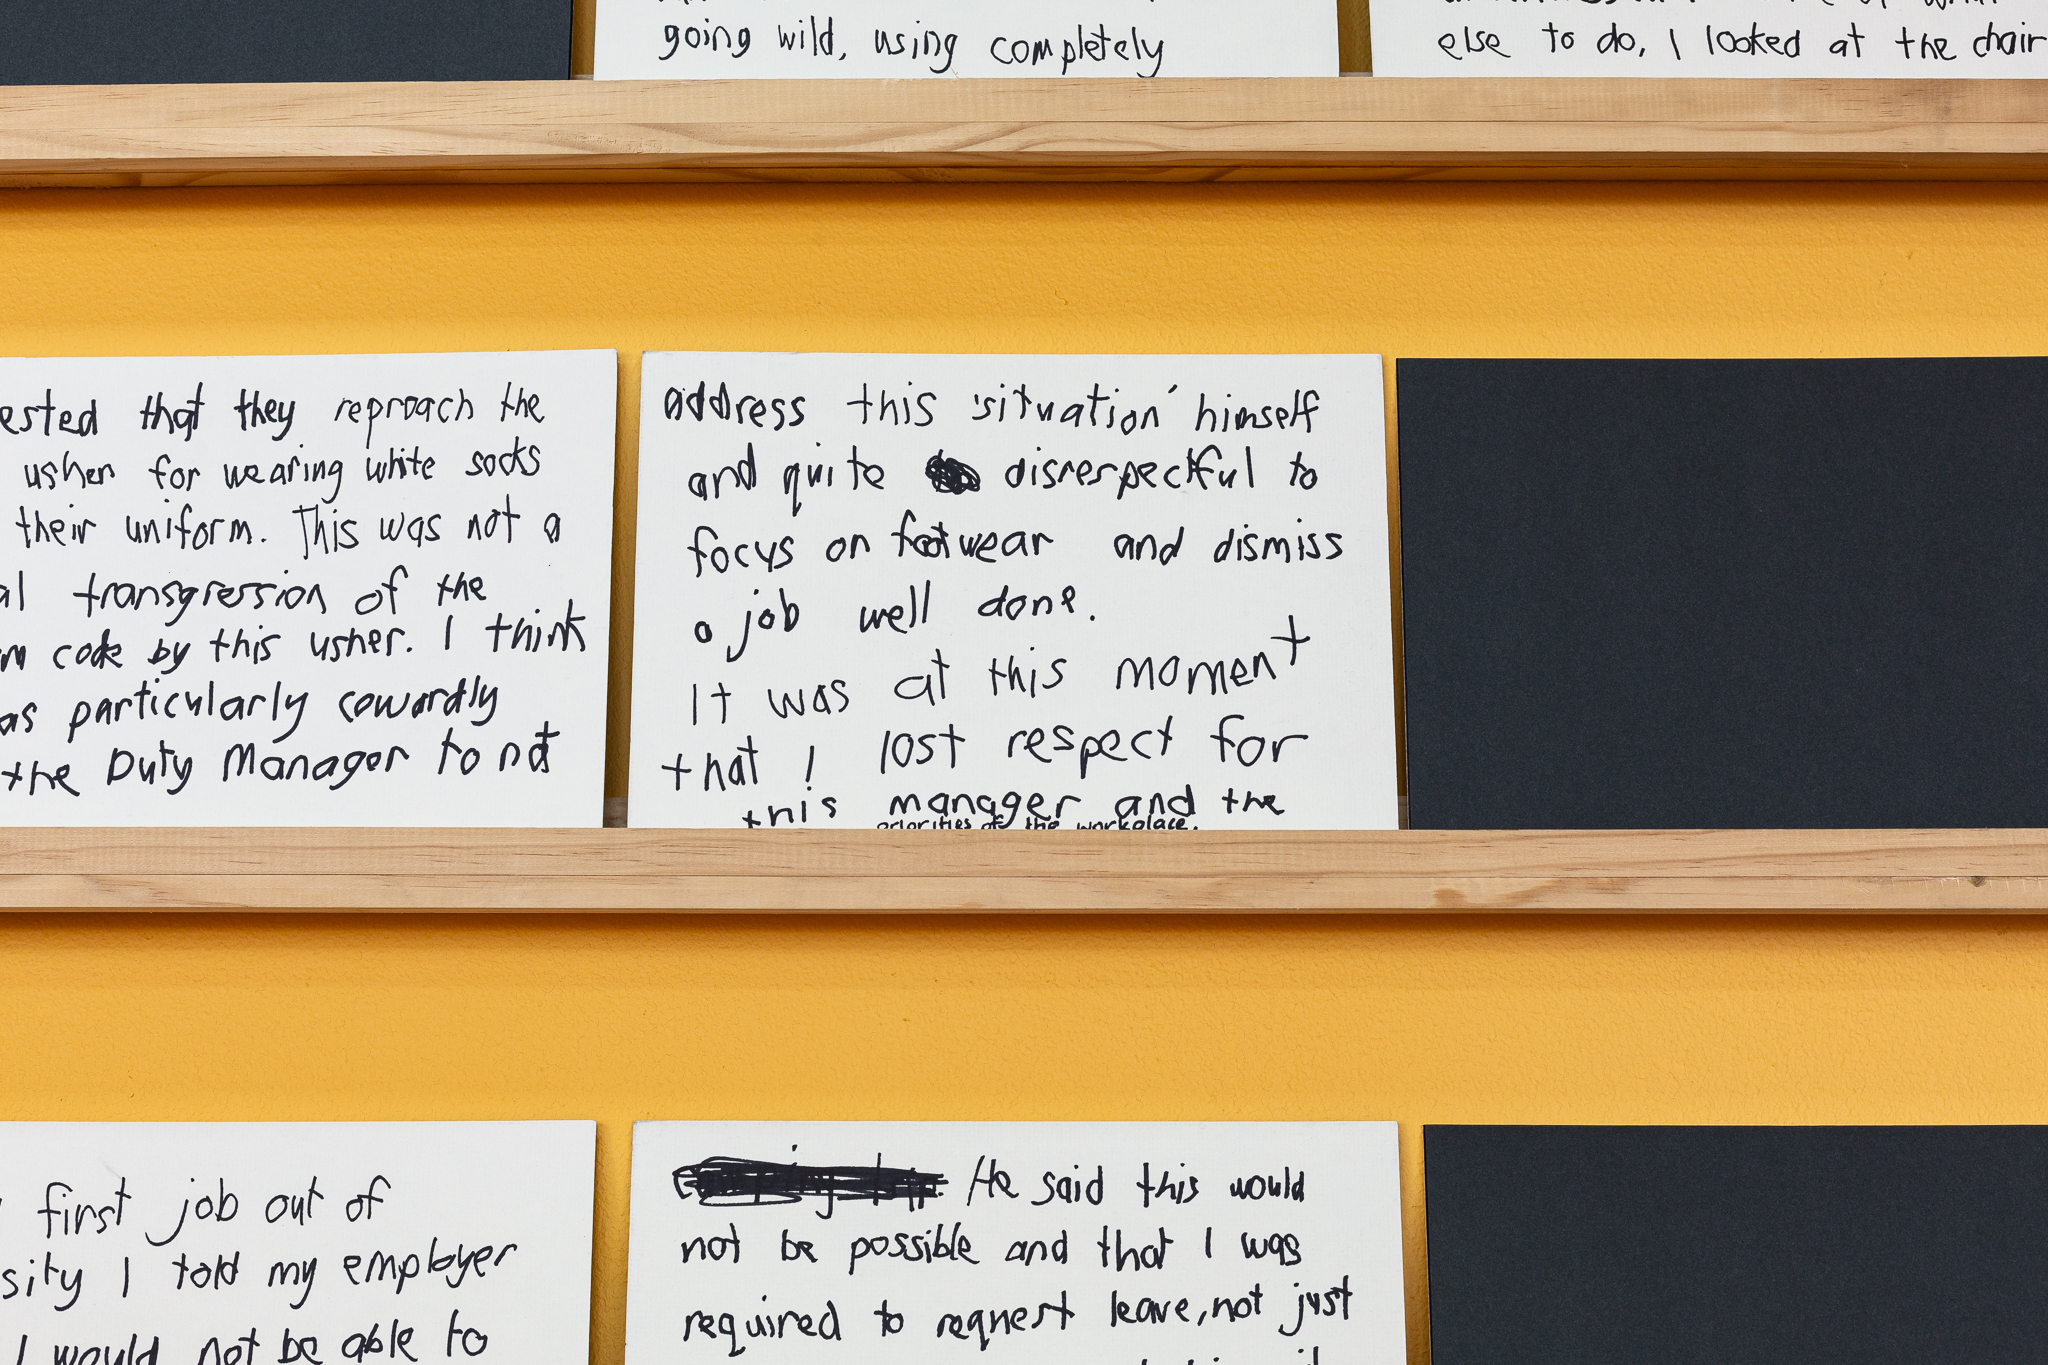 going wild, using completely
else to do, I looked at the chair
ested that they reproach the
usher for wearing white socks
their uniform. This was not a
al transgression of the
m code by this usher. I think
as particularly cowardly
the Duty Manager to not
address this 'situation' himself
and quite disrespectful to
focus on footwear and dismiss
a job well done.
It was at this moment
that I lost respect for
this manager and the
priorities of the workplace.
first job out of
sity I told my employer
I would not be able to
He said this would
not be possible and that I was
required to request leave, not just